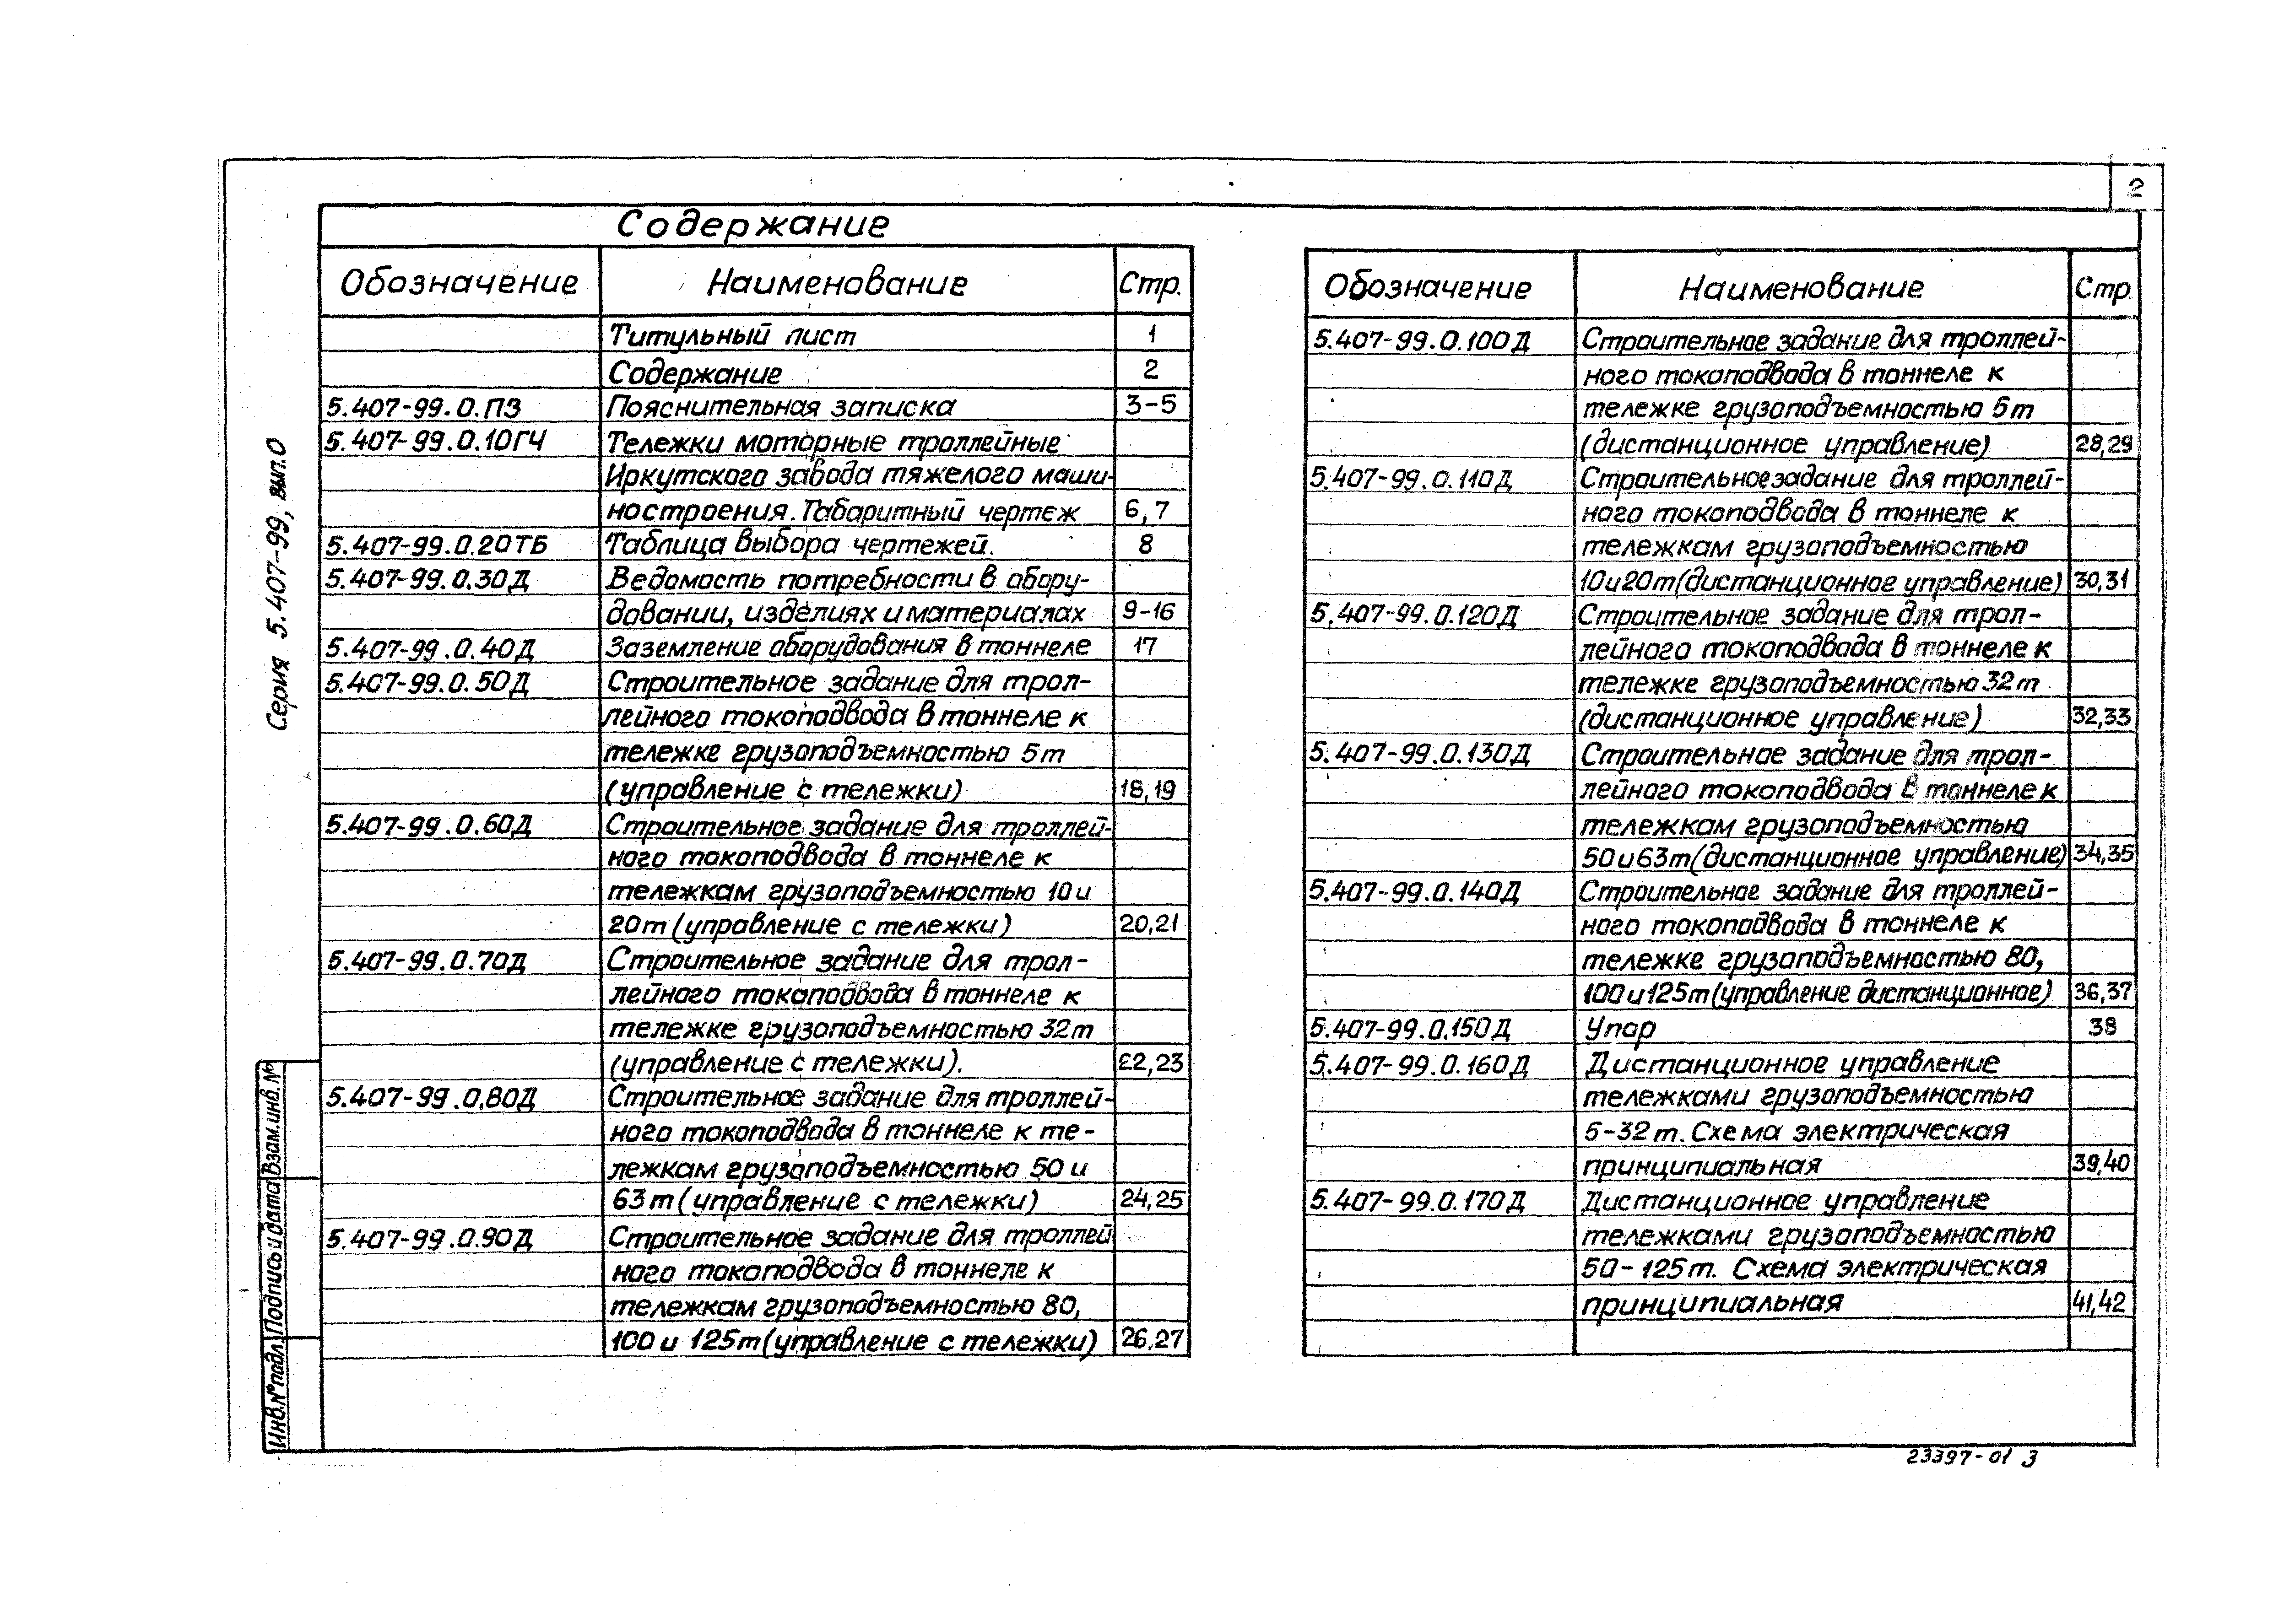 2
Содержание
Обозначение Наименование Стр.
Титульный лист 1
Содержание 2
5.407-99.0.ПЗ Пояснительная записка 3-5
5.407-99.0.10ГЧ Тележки моторные троллейные
Иркутского завода тяжелого маши-
ностроения. Габаритный чертеж 6,7
5.407-99.0.20ТБ Таблица выбора чертежей. 8
5.407-99.0.30Д Ведомость потребности в обору-
довании, изделиях и материалах 9-16
5.407-99.0.40Д Заземление оборудования в тоннеле 17
5.407-99.0.50Д Строительное задание для трол-
лейного токоподвода в тоннеле к
тележке грузоподъемностью 5т
(управление с тележки) 18,19
5.407-99.0.60Д Строительное задание для троллей-
ного токоподвода в тоннеле к
тележкам грузоподъемностью 10 и
20т (управление с тележки) 20,21
5.407-99.0.70Д Строительное задание для трол-
лейного токоподвода в тоннеле к
тележке грузоподъемностью 32т
(управление с тележки). 22,23
5.407-99.0.80Д Строительное задание для троллей-
ного токоподвода в тоннеле к те-
лежкам грузоподъемностью 50 и
63т (управление с тележки) 24,25
5.407-99.0.90Д Строительное задание для троллей
ного токоподвода в тоннеле к
тележкам грузоподъемностью 80,
100 и 125т (управление с тележки) 26,27
Обозначение Наименование Стр
5.407-99.0.100Д Строительное задание для троллей-
ного токоподвода в тоннеле к
тележке грузоподъемностью 5т
(дистанционное управление) 28,29
5.407-99.0.110Д Строительное задание для троллей-
ного токоподвода в тоннеле к
тележкам грузоподъемностью
10 и 20т (дистанционное управление) 30,31
5.407-99.0.120Д Строительное задание для трол-
лейного токоподвода в тоннеле к
тележке грузоподъемностью 32т
(дистанционное управление) 32,33
5.407-99.0.130Д Строительное задание для трол-
лейного токоподвода в тоннеле к
тележкам грузоподъемностью
50 и 63т (дистанционное управление) 34,35
5.407-99.0.140Д Строительное задание для троллей-
ного токоподвода в тоннеле к
тележке грузоподъемностью 80,
100 и 125т (управление дистанционное) 36,37
5.407-99.0.150Д Упор 38
5.407-99.0.160Д Дистанционное управление
тележками грузоподъемностью
5-32т. Схема электрическая
принципиальная 39,40
5.407-99.0.170Д Дистанционное управление
тележками грузоподъемностью
50-125т. Схема электрическая
принципиальная 41,42
Серия 5.407-99, вып.0
Взам.инв.№
Подпись и дата
Инв.№подл.
23397-01 3